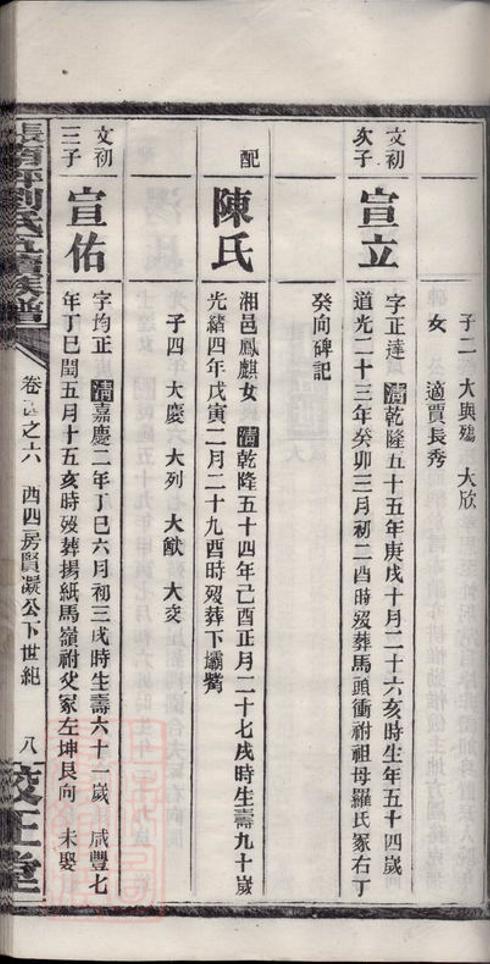 子二 大興殤 大欣
女 適賈長秀
文初
次子
宣立
字正達 清乾隆五十五年庚戌十月二十六亥時生年五十四歲
道光二十三年癸卯三月初二酉時歿葬馬頭衝祔祖母羅氏冢右丁
癸向碑記
配
陳氏
湘邑鳳麒女 清乾隆五十四年己酉正月二十七戌時生壽九十歲
光緒四年戊寅二月二十九酉時歿葬下壩觜
子四 大慶 大列 大猷 大交
文初
三子
宣佑
字均正 清嘉慶二年丁巳六月初三戌時生壽六十一歲 咸豐七
年丁巳閏五月十五亥時歿葬揚紙馬嶺祔父冢左坤艮向 未娶
劉氏五續族譜
之六 西四房賢凝公下世紀 八
校正堂